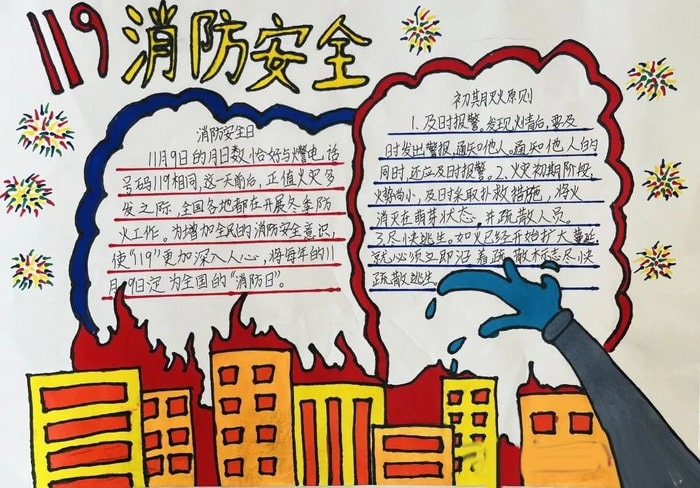 119消防安全
消防安全日
11月9日的月日数恰好与火警电话
号码119相同,这一天前后,正值火灾多
发之际,全国各地都在开展冬季防
火工作。为增加全民的消防安全意识,
使“119”更加深入人心,将每年的11
月9日定为全国的“消防日”。
初期灭火原则
1.及时报警,发现火情后,要及
时发出警报,通知他人。通知他人的
同时,还应及时报警。2.火灾初期阶段,
火势尚小,及时采取扑救措施,将火
消灭在萌芽状态,并疏散人员。
3.尽快逃生。如火已经开始扩大蔓延,
就必须立即沿着疏散标志尽快
疏散逃生。